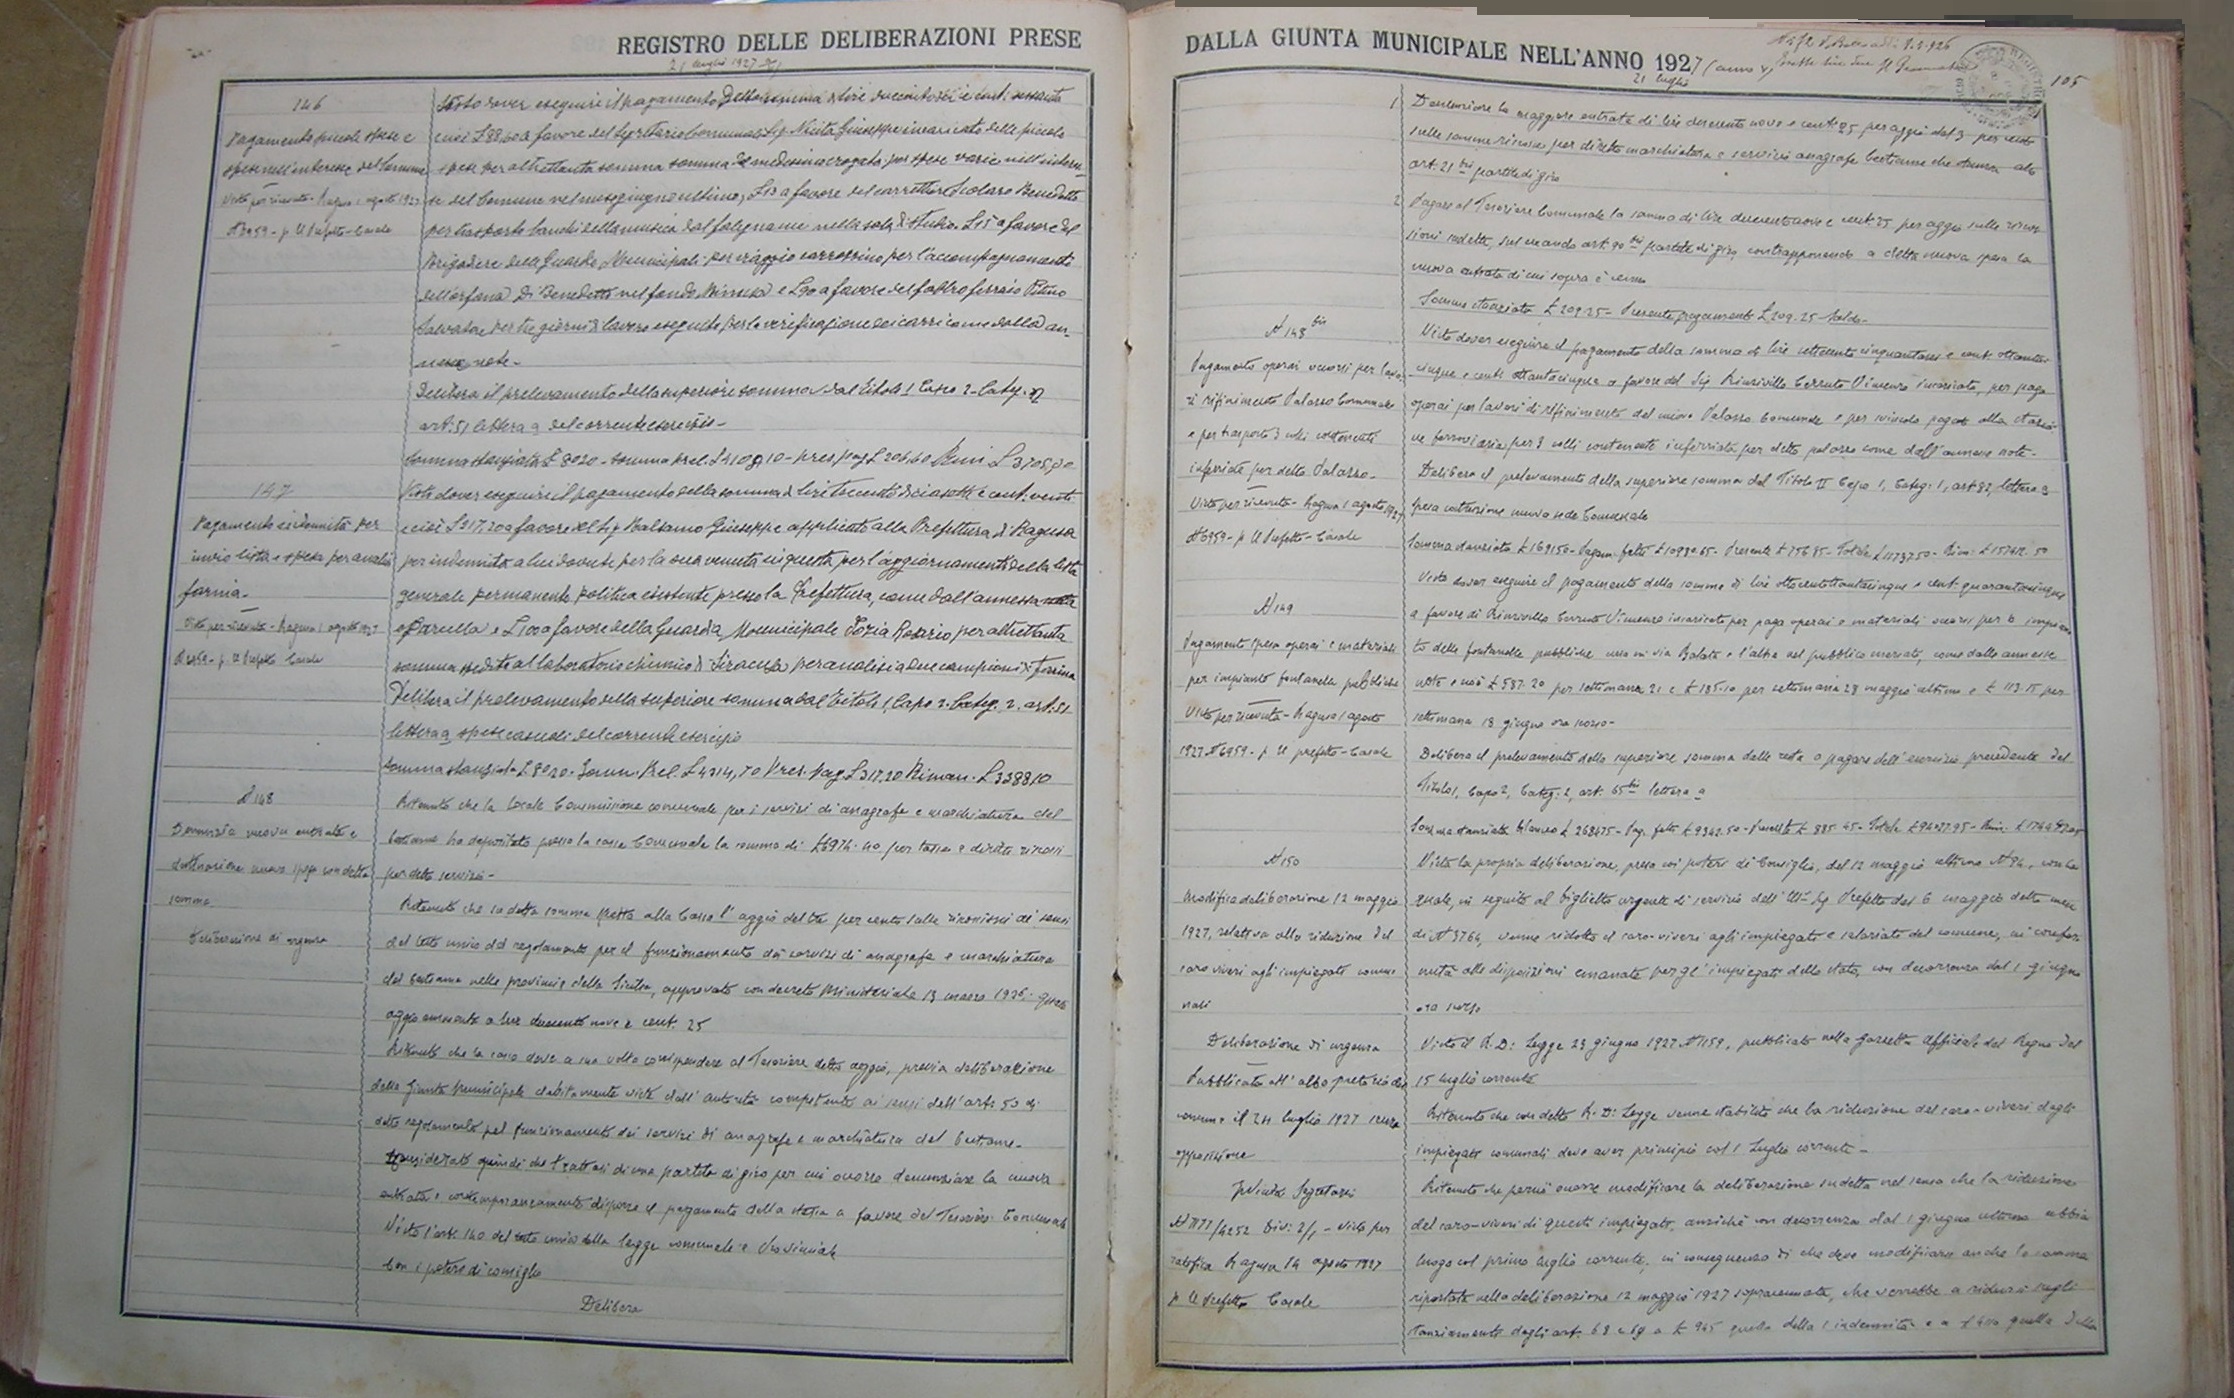 REGISTRO DELLE DELIBERAZIONI PRESE
21 luglio 1927
146
Pagamento piccole spese e
spese nell'interesse del Comune
Visto per ricevuta - Ragusa 1 agosto 1927
N 6959 - p. Il Prefetto - Casale
147
Pagamento indennità per
invio lista e spesa per analisi
farina -
Visto per ricevuta - Ragusa 1 agosto 1927
N 6959 - p. Il Prefetto Casale
N 148
Denunzia nuova entrata e
nuova spesa con detta
somma
Deliberazione di urgenza
Visto dover eseguire il pagamento della somma di lire
a favore del Segretario Comunale Sig. Giuseppe incaricato delle piccole
spese per altrettanta somma somma medesima erogata per spese varie nell'interes-
se del Comune nel mese giugno ultimo, L 13 a favore del carrettiere Scolaro Benedetto
per trasporto banchi della musica dal falegname nella sala di studio. L 15 a favore del
Brigadiere delle Guardie Municipali per viaggio per l'accompagnamento
dell'orfana Di Benedetto nel fondo e L 90 a favore del fabbro ferraio
Salvatore per tre giorni di lavoro eseguito per la verificazione dei carri come dalla an-
nessa nota -
Delibera il prelevamento della superiore somma dal Titolo 1 Capo 2 - Categ. 2
art. 51 lettera a del corrente esercizio -
Somma stanziata £ 8020 - somma prel. - pres. pag. L 206,60 Rim. L
Visto dover eseguire il pagamento della somma di lire trecentodiciasette e cent. venti
e cioè L 217,20 a favore del Sig Balsamo Giuseppe applicato alla Prefettura di Ragusa
per indennità a lui dovute per la sua venuta in questa per l'aggiornamento della lista
generale permanente politica esistente presso la Prefettura, come dall'annessa nota
e parcella e L 100 a favore della Guardia Municipale Rosario per altrettanta
somma spedita al laboratorio chimico di Siracusa per analisi a due campioni di farina
Delibera il prelevamento della superiore somma dal Titolo 1, Capo 2. Categ. 2. art. 51
lettera a spese casuali del corrente esercizio
Somma stanziata L 8020. Somm. Prel. L 4314,70 Pres. Pag L 317.20 Riman. L 3388,10
Ritenuto che la locale Commissione comunale per i servizi di anagrafe e marchiatura del
bestiame ha depositato presso la cassa Comunale la somma di £ 6974.40 per tasse e diritti riscossi
per detto servizio -
Ritenuto che su detta somma spetta alla Cassa l'aggio del tre per cento sulle riscossioni ai sensi
del testo unico del regolamento per il funzionamento dei servizi di anagrafe e marchiatura
del bestiame nelle provincie della Sicilia, approvato con decreto Ministeriale 13 marzo 1926; quale
aggio ammonta a lire duecento nove e cent. 25
Ritenuto che la cassa deve a sua volta corrispondere al Tesoriere detto aggio, previa deliberazione
della Giunta Municipale debitamente vista dall'autorità competente ai sensi dell'art. 50 di
detto regolamento pel funzionamento dei servizi di anagrafe e marchiatura del bestiame -
Considerato quindi che trattasi di una partita di giro per cui occorre denunziare la nuova
entrata e contemporaneamente disporre il pagamento della stessa a favore del Tesoriere Comunale
Visto l'art. 140 del testo unico della legge comunale e Provinciale
Con i poteri di consiglio
Delibera
DALLA GIUNTA MUNICIPALE NELL'ANNO 1927 (anno V)
21 luglio
105
N 148 bis
Pagamento operai occorsi per lavo-
ri rifinimento Palazzo Comunale
e per trasporto 3 colli contenenti
inferriate per detto Palazzo -
Visto per ricevuta - Ragusa 1 agosto 1927
N 6959 - p. Il Prefetto - Casale
N 149
Pagamento spesa operai e materiali
per impianto fontanelle pubbliche
Visto per ricevuta - Ragusa 1 agosto
1927 N 6959 - p Il prefetto - Casale
N 150
Modifica deliberazione 12 maggio
1927, relativa alla riduzione del
caro viveri agli impiegati comu-
nali
Deliberazione di urgenza
Pubblicata all'albo pretorio del
comune il 24 luglio 1927 senza
opposizione
Il Segretario
Div: 2/1 - Visto per
ratifica Ragusa 14 agosto 1927
p Il Prefetto Casale
1 Denunziare la maggiore entrata di lire duecento nove e cent. 25 per aggio del 3 per cento
sulle somme riscosse per diritto marchiatura e servizio anagrafe bestiame che allo
art. 21 bis partite di giro
2 Pagare al Tesoriere Comunale la somma di lire duecentonove e cent. 25 per aggio sulle riscos-
sioni sudette, sul creando art. 90 bis partite di giro, contrapponendo a detta nuova spesa la
nuova entrata di cui sopra è cenno
Somma stanziata £ 209.25 - Presente pagamento £ 209.25 Saldo -
Visto dover eseguire il pagamento della somma di lire settecento cinquantasei e cent. ottanta-
cinque e cent. ottantacinque a favore del Sig. Cerruto Vincenzo incaricato, per paga
operai per lavori di rifinimento del nuovo Palazzo Comunale e per svincolo pagato alla stazio-
ne ferroviaria per 3 colli contenenti inferriate per detto palazzo come dall'annessa nota -
Delibera il prelevamento della superiore somma dal Titolo II Capo 1, Categ: 1, art 82, lettera a
spesa costruzione nuova sede Comunale
Somma stanziata £ 169150 - Pagam. fatti £ 10980.65 - Presente £ 756.85 - Totale £ 11737.50 - Rim: £ 157412.50
Visto dover eseguire il pagamento della somma di lire ottocentottantacinque e cent. quarantacinque
a favore di Cerruto Vincenzo incaricato per paga operai e materiali occorsi per lo impian-
to delle fontanelle pubbliche una in via Balata e l'altra nel pubblico mercato, come dalle annesse
note e cioè £ 587.20 per settimana 21 e £ 185.10 per settimana 28 maggio ultimo e £ 113.15 per
settimana 18 giugno ora scorso -
Delibera il prelevamento della superiore somma dalle resta a pagare dell'esercizio precedente del
Titolo 1, Capo 2, Categ: 2, art. 65 bis lettera a
Somma stanziata £ 268475 - Pag. fatti £ 9342.50 - Presente £ 885.45 - Totale
Vista la propria deliberazione, presa coi poteri di Consiglio, del 12 maggio ultimo N 94, con la
quale, in seguito al biglietto urgente di servizio dell'Ill.mo Sig Prefetto del 6 maggio detto mese
di N 3764, venne ridotto il caro-viveri agli impiegati e salariati del comune, in confor-
mità alle disposizioni emanate per gl'impiegati dello stato, con decorrenza dal 1 giugno
ora scorso
Visto il R. D: Legge 23 giugno 1927 N 1159, pubblicato nella gazzetta ufficiale del Regno del
15 luglio corrente
Ritenuto che con detto R. D: Legge venne stabilito che la riduzione del caro-viveri degli
impiegati comunali deve aver principio col 1 Luglio corrente -
Ritenuto che perciò occorre modificare la deliberazione sudetta nel senso che la riduzione
del caro-viveri di questi impiegati, anzichè con decorrenza dal 1 giugno ultimo abbia
luogo col primo luglio corrente, in conseguenza di che deve modificarsi anche la somma
riportata nella deliberazione 12 maggio 1927 sopracennata, che verrebbe a ridursi negli
stanziamenti degli art. 68 e 69 a £ 945 quella della 1 indennità e a £ quella della